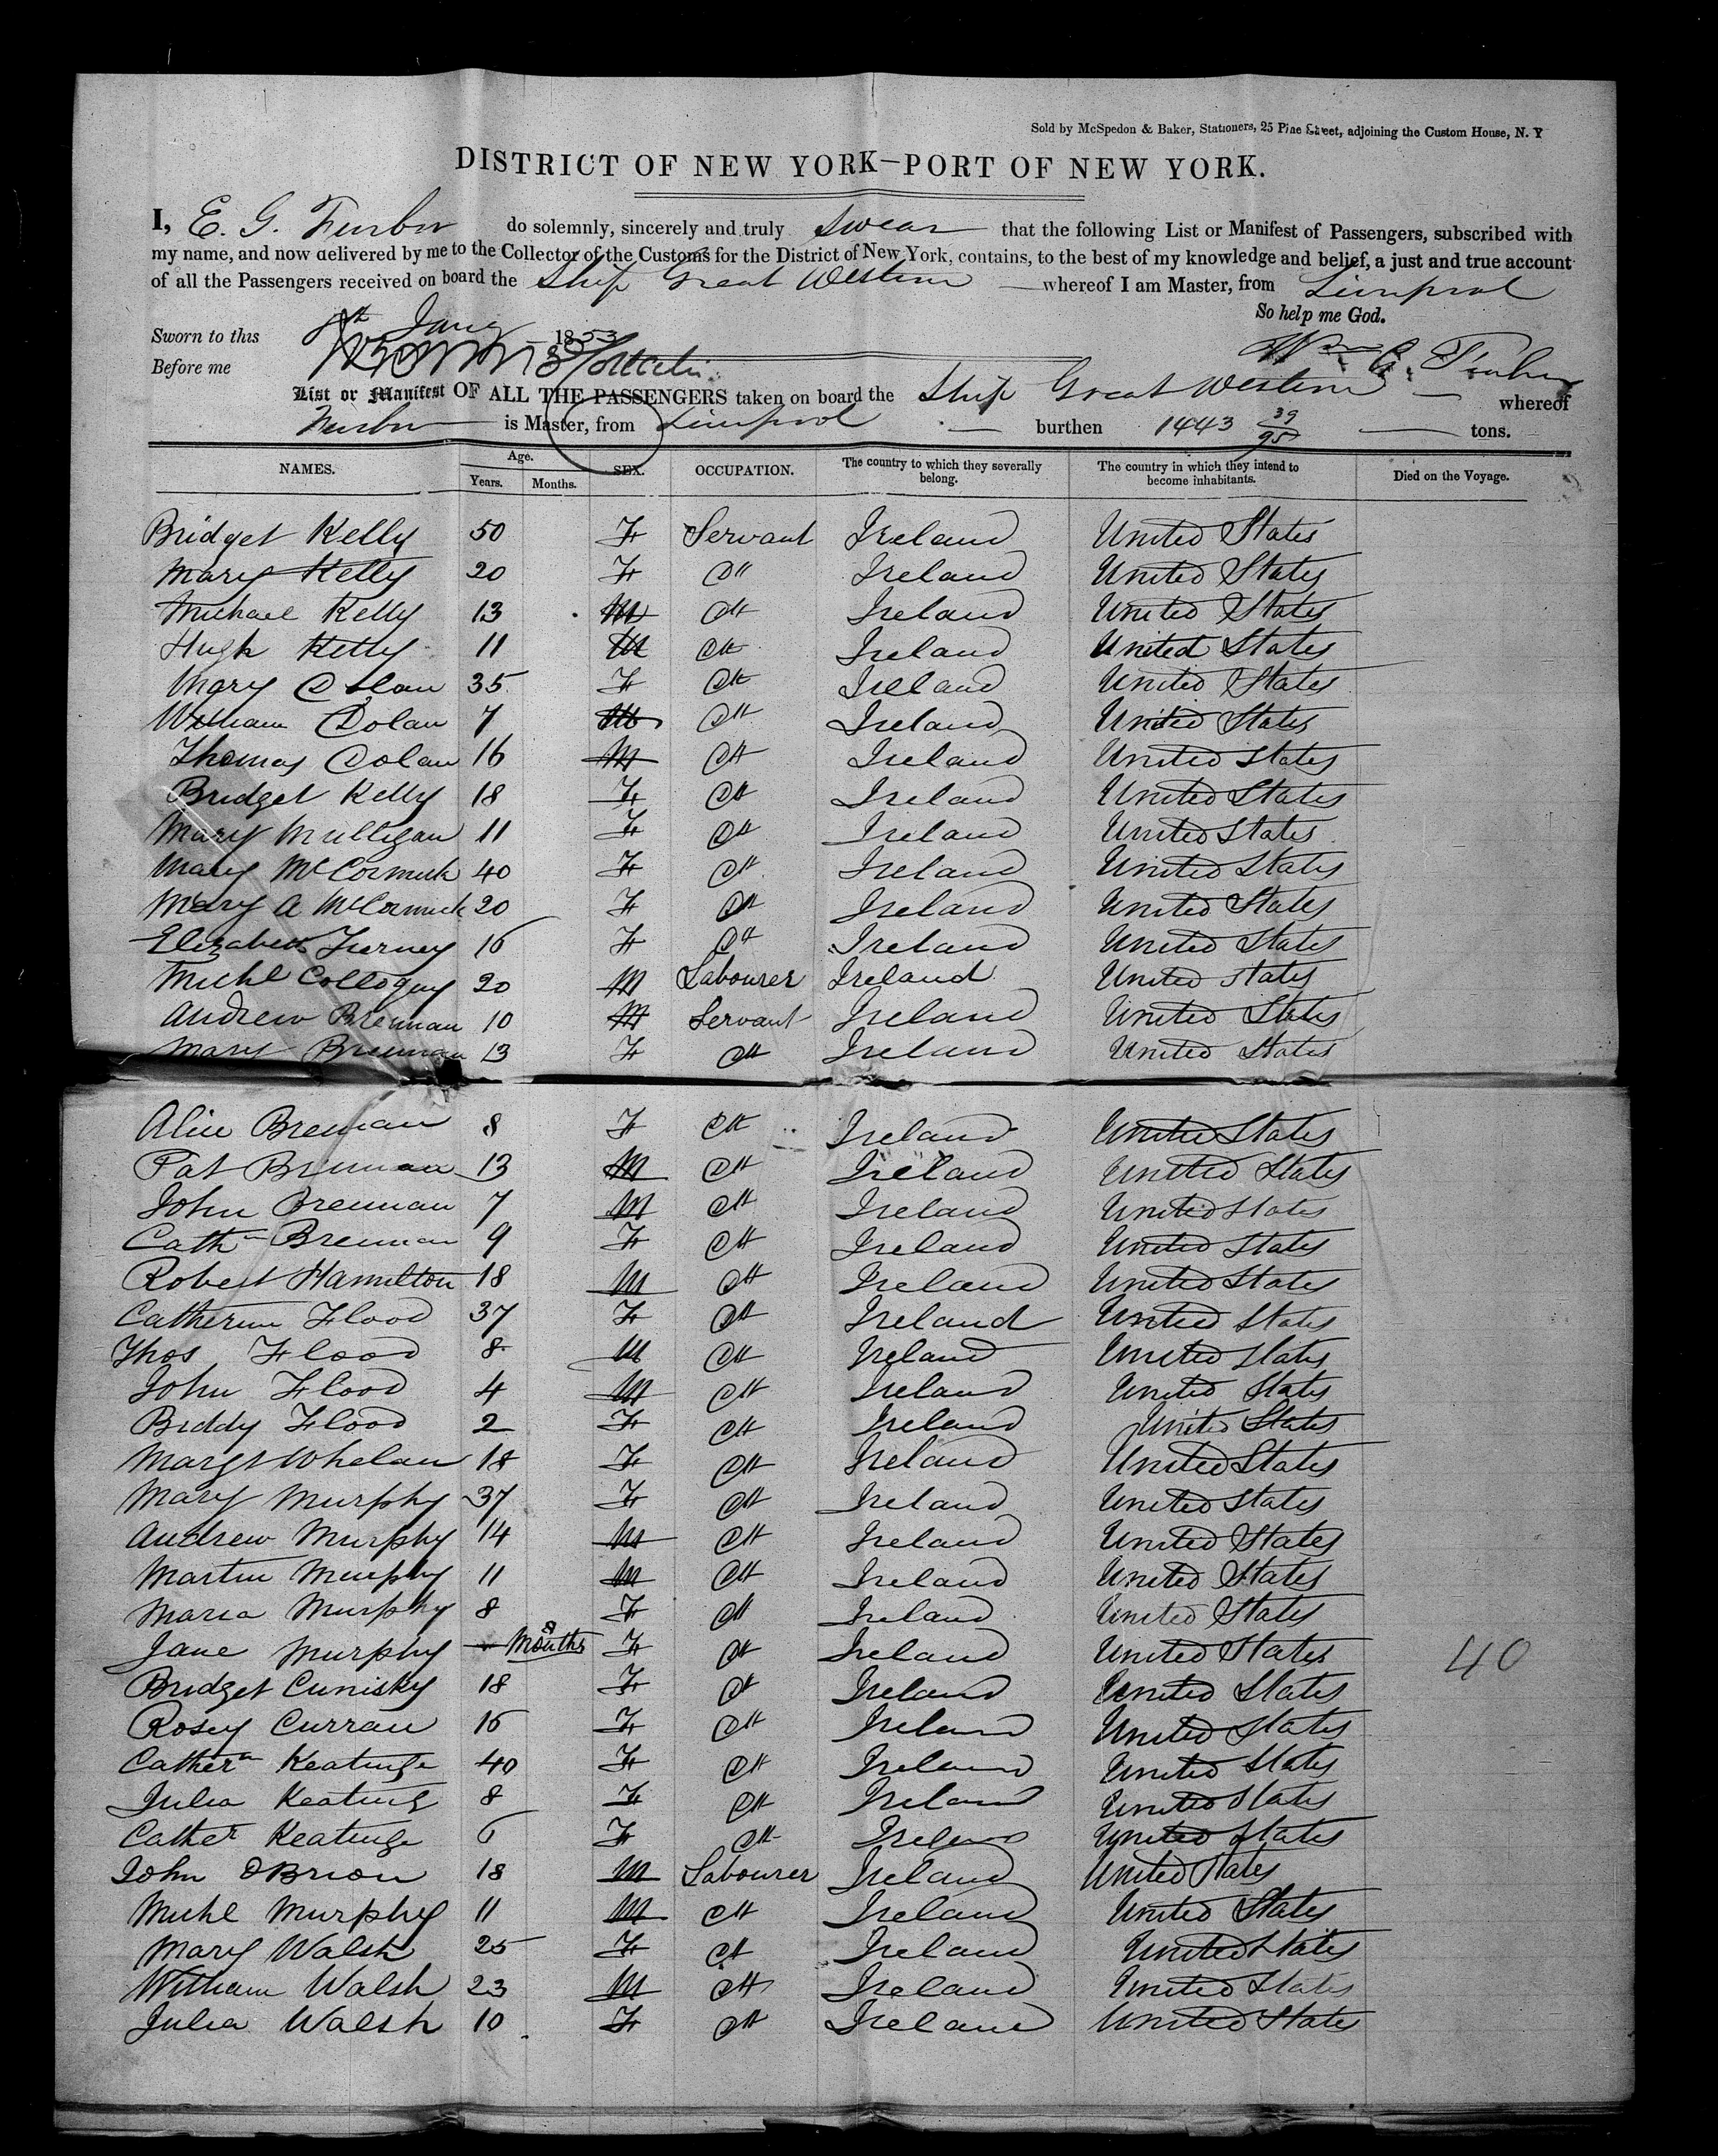 Sold by McSpedon & Baker, Stationers, 25 Pine Street, adjoining the Custom House, N. Y
DISTRICT OF NEW YORK—PORT OF NEW YORK.
I, E. G. Furber do solemnly, sincerely and truly swear that the following List or Manifest of Passengers, subscribed with
my name, and now delivered by me to the Collector of the Customs for the District of New York, contains, to the best of my knowledge and belief, a just and true account
of all the Passengers received on board the Ship Great Western whereof I am Master, from Liverpool
So help me God.
Sworn to this Jany 1853
Before me
List or Manifest OF ALL THE PASSENGERS taken on board the Ship Great Western whereof
Furber is Master, from Liverpool burthen 1443 39/95 tons.
NAMES. Age. Years. Months. SEX. OCCUPATION. The country to which they severally belong. The country in which they intend to become inhabitants. Died on the Voyage.
Bridget Kelly 50 F Servant Ireland United States
Mary Kelly 20 F Dtt Ireland United States
Michael Kelly 13 M Dtt Ireland United States
Hugh Kelly 11 M Dtt Ireland United States
Mary Dolan 35 F Dtt Ireland United States
William Dolan 7 M Dtt Ireland United States
Thomas Dolan 16 M Dtt Ireland United States
Bridget Kelly 18 F Dtt Ireland United States
Mary Mulligan 11 F Dtt Ireland United States
Mary McCormick 40 F Dtt Ireland United States
Mary A McCormick 20 F Dtt Ireland United States
Elizabeth Tierney 16 F Dtt Ireland United States
Michl Colloguy 20 M Labourer Ireland United States
Andrew Brennan 10 M Servant Ireland United States
Mary Brennan 13 F Dtt Ireland United States
Alice Brennan 8 F Dtt Ireland United States
Pat Brennan 13 M Dtt Ireland United States
John Brennan 7 M Dtt Ireland United States
Cathn Brennan 9 F Dtt Ireland United States
Robert Hamilton 18 M Dtt Ireland United States
Catherine Flood 37 F Dtt Ireland United States
Thos Flood 8 M Dtt Ireland United States
John Flood 4 M Dtt Ireland United States
Biddy Flood 2 F Dtt Ireland United States
Margt Whelan 18 F Dtt Ireland United States
Mary Murphy 37 F Dtt Ireland United States
Andrew Murphy 14 M Dtt Ireland United States
Martin Murphy 11 M Dtt Ireland United States
Maria Murphy 8 F Dtt Ireland United States
Jane Murphy 8 Months F Dtt Ireland United States 40
Bridget Cunisky 18 F Dtt Ireland United States
Rosey Curran 16 F Dtt Ireland United States
Cathern Keatinge 40 F Dtt Ireland United States
Julia Keating 8 F Dtt Ireland United States
Cather Keatinge 6 F Dtt Ireland United States
John OBrion 18 M Labourer Ireland United States
Michl Murphy 11 M Dtt Ireland United States
Mary Walsh 25 F Dtt Ireland United States
William Walsh 23 M Dtt Ireland United States
Julia Walsh 10 F Dtt Ireland United States